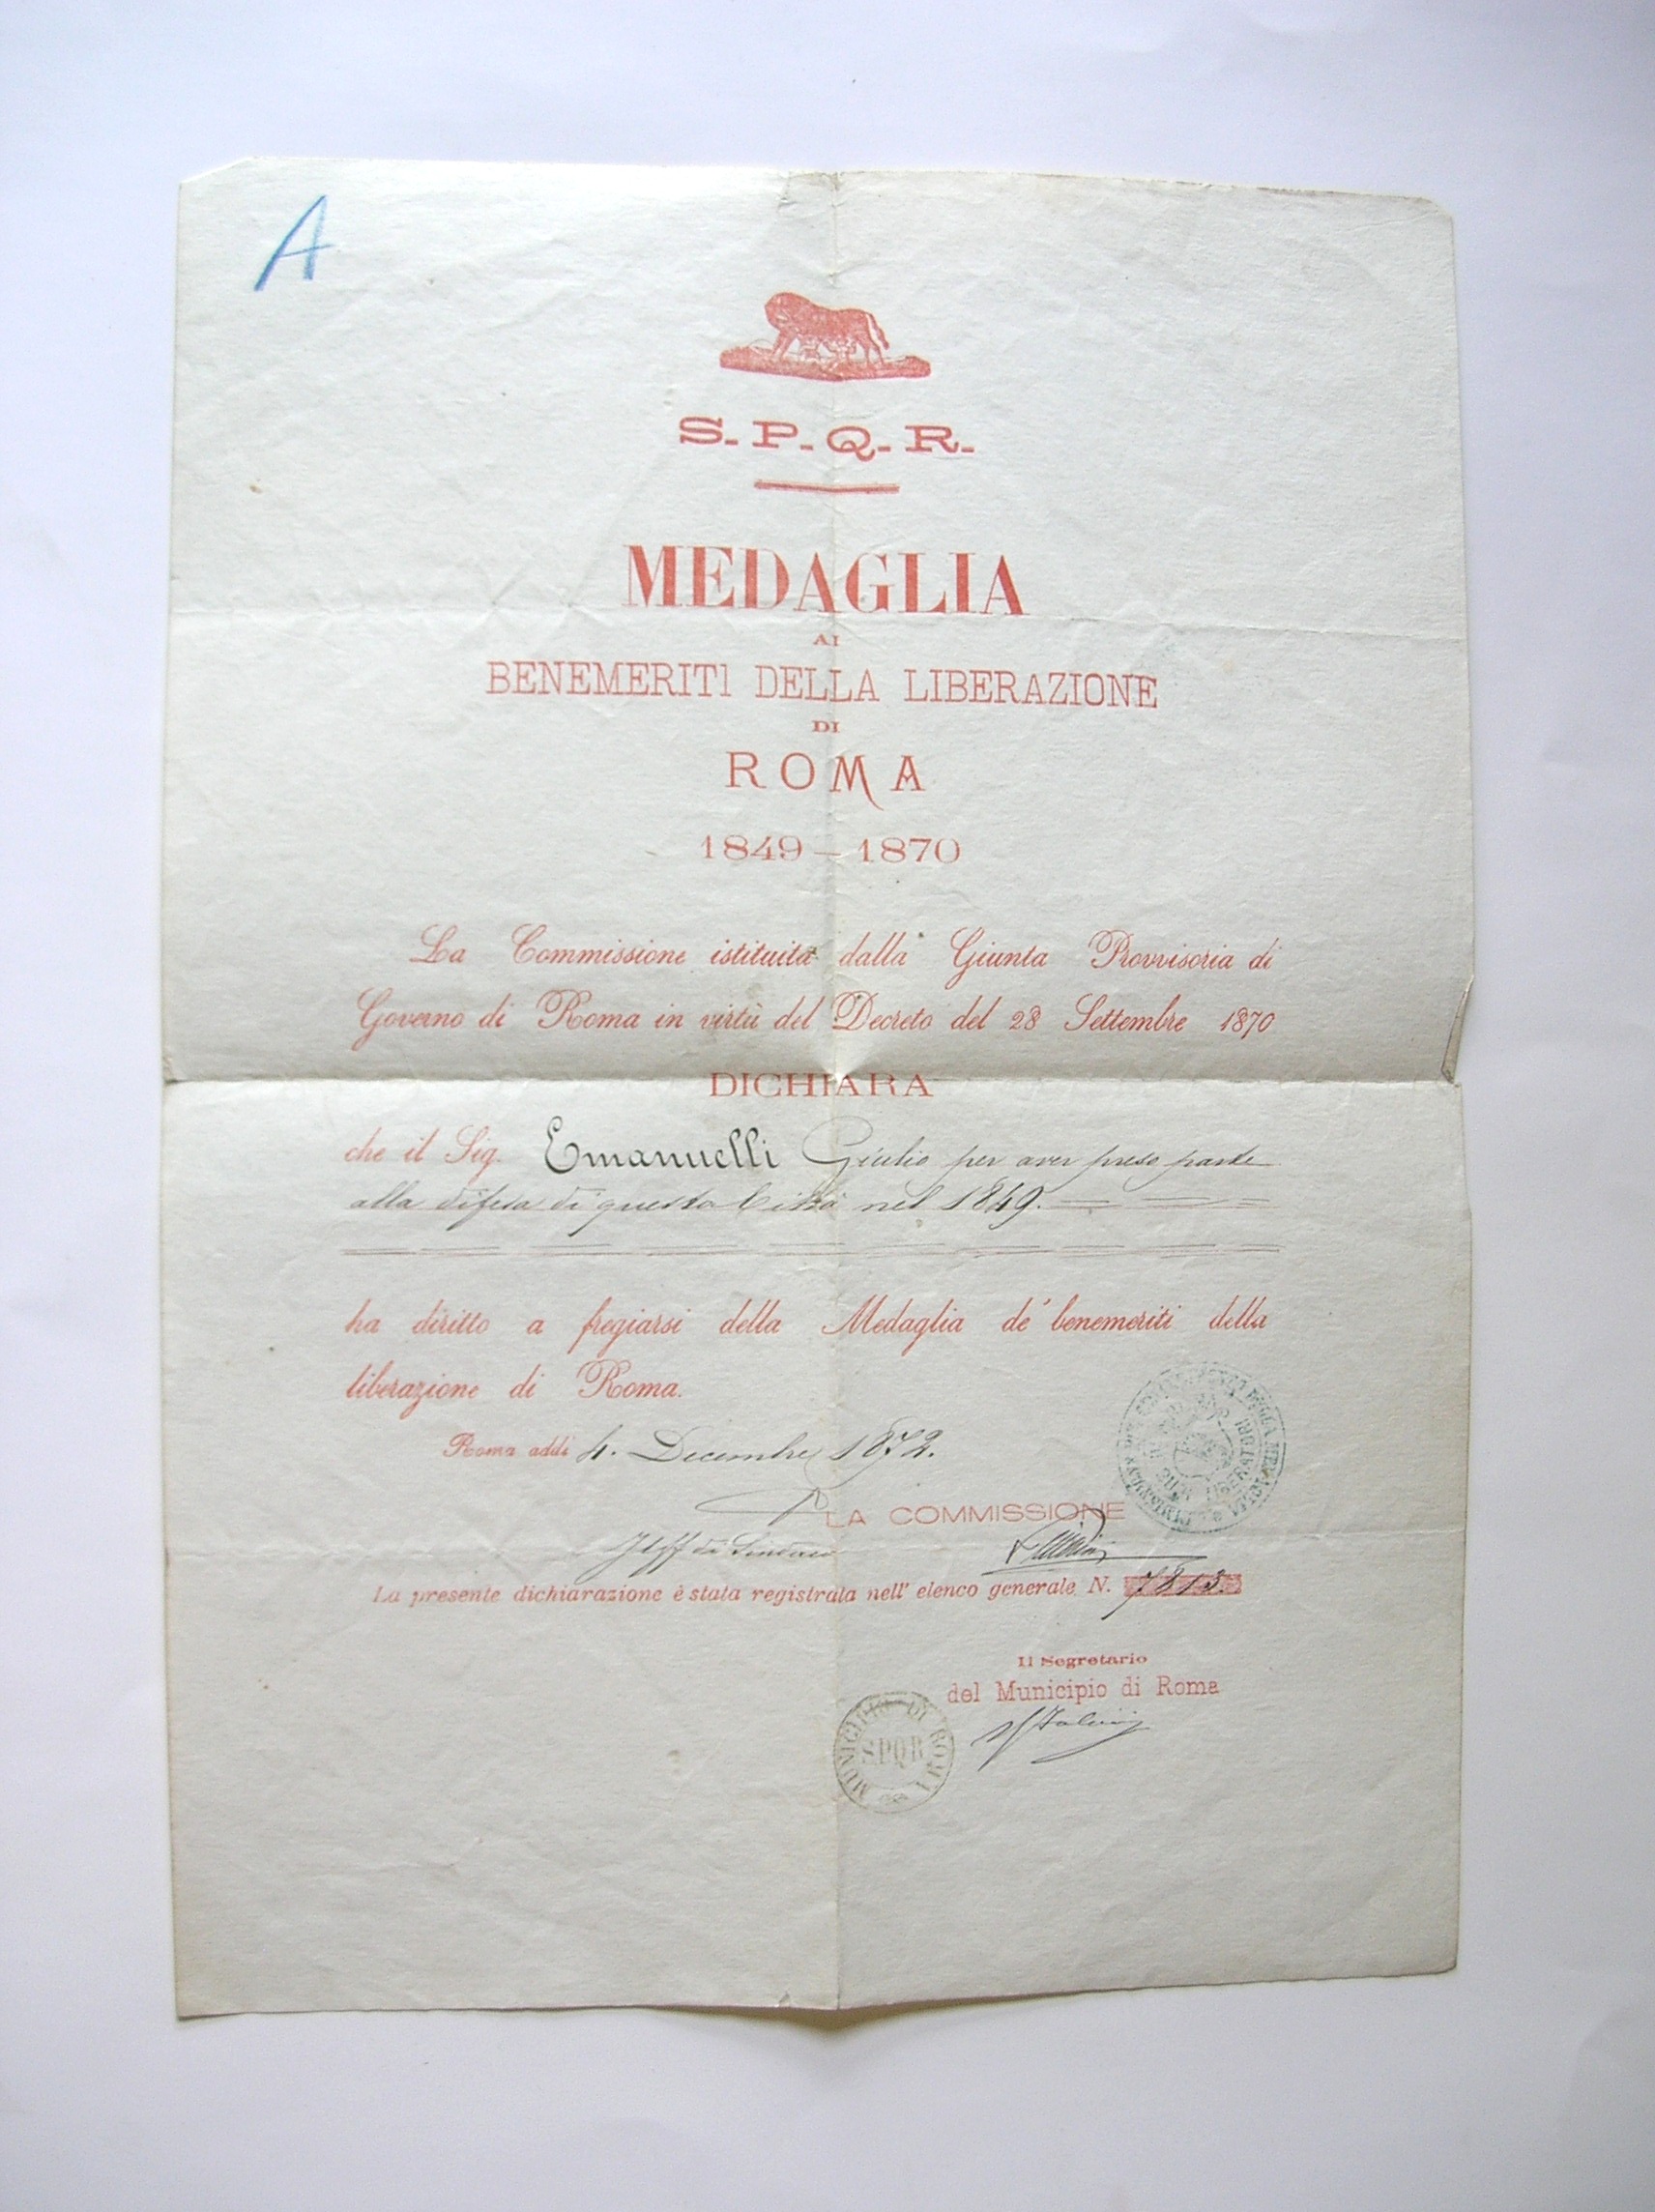 A
S. P. Q. R.
MEDAGLIA
AI
BENEMERITI DELLA LIBERAZIONE
DI
ROMA
1849 – 1870
La Commissione istituita dalla Giunta Provvisoria di
Governo di Roma in virtù del Decreto del 28 Settembre 1870
DICHIARA
che il Sig. Emanuelli Giulio per aver preso parte
alla difesa di questa Città nel 1849.
ha diritto a fregiarsi della Medaglia de' benemeriti della
liberazione di Roma.
Roma addì 4. Decembre 1872.
LA COMMISSIONE
Il ff di Sindaco
La presente dichiarazione è stata registrata nell' elenco generale N. 7813.
Il Segretario
del Municipio di Roma
MUNICIPIO DI ROMA
SPQR